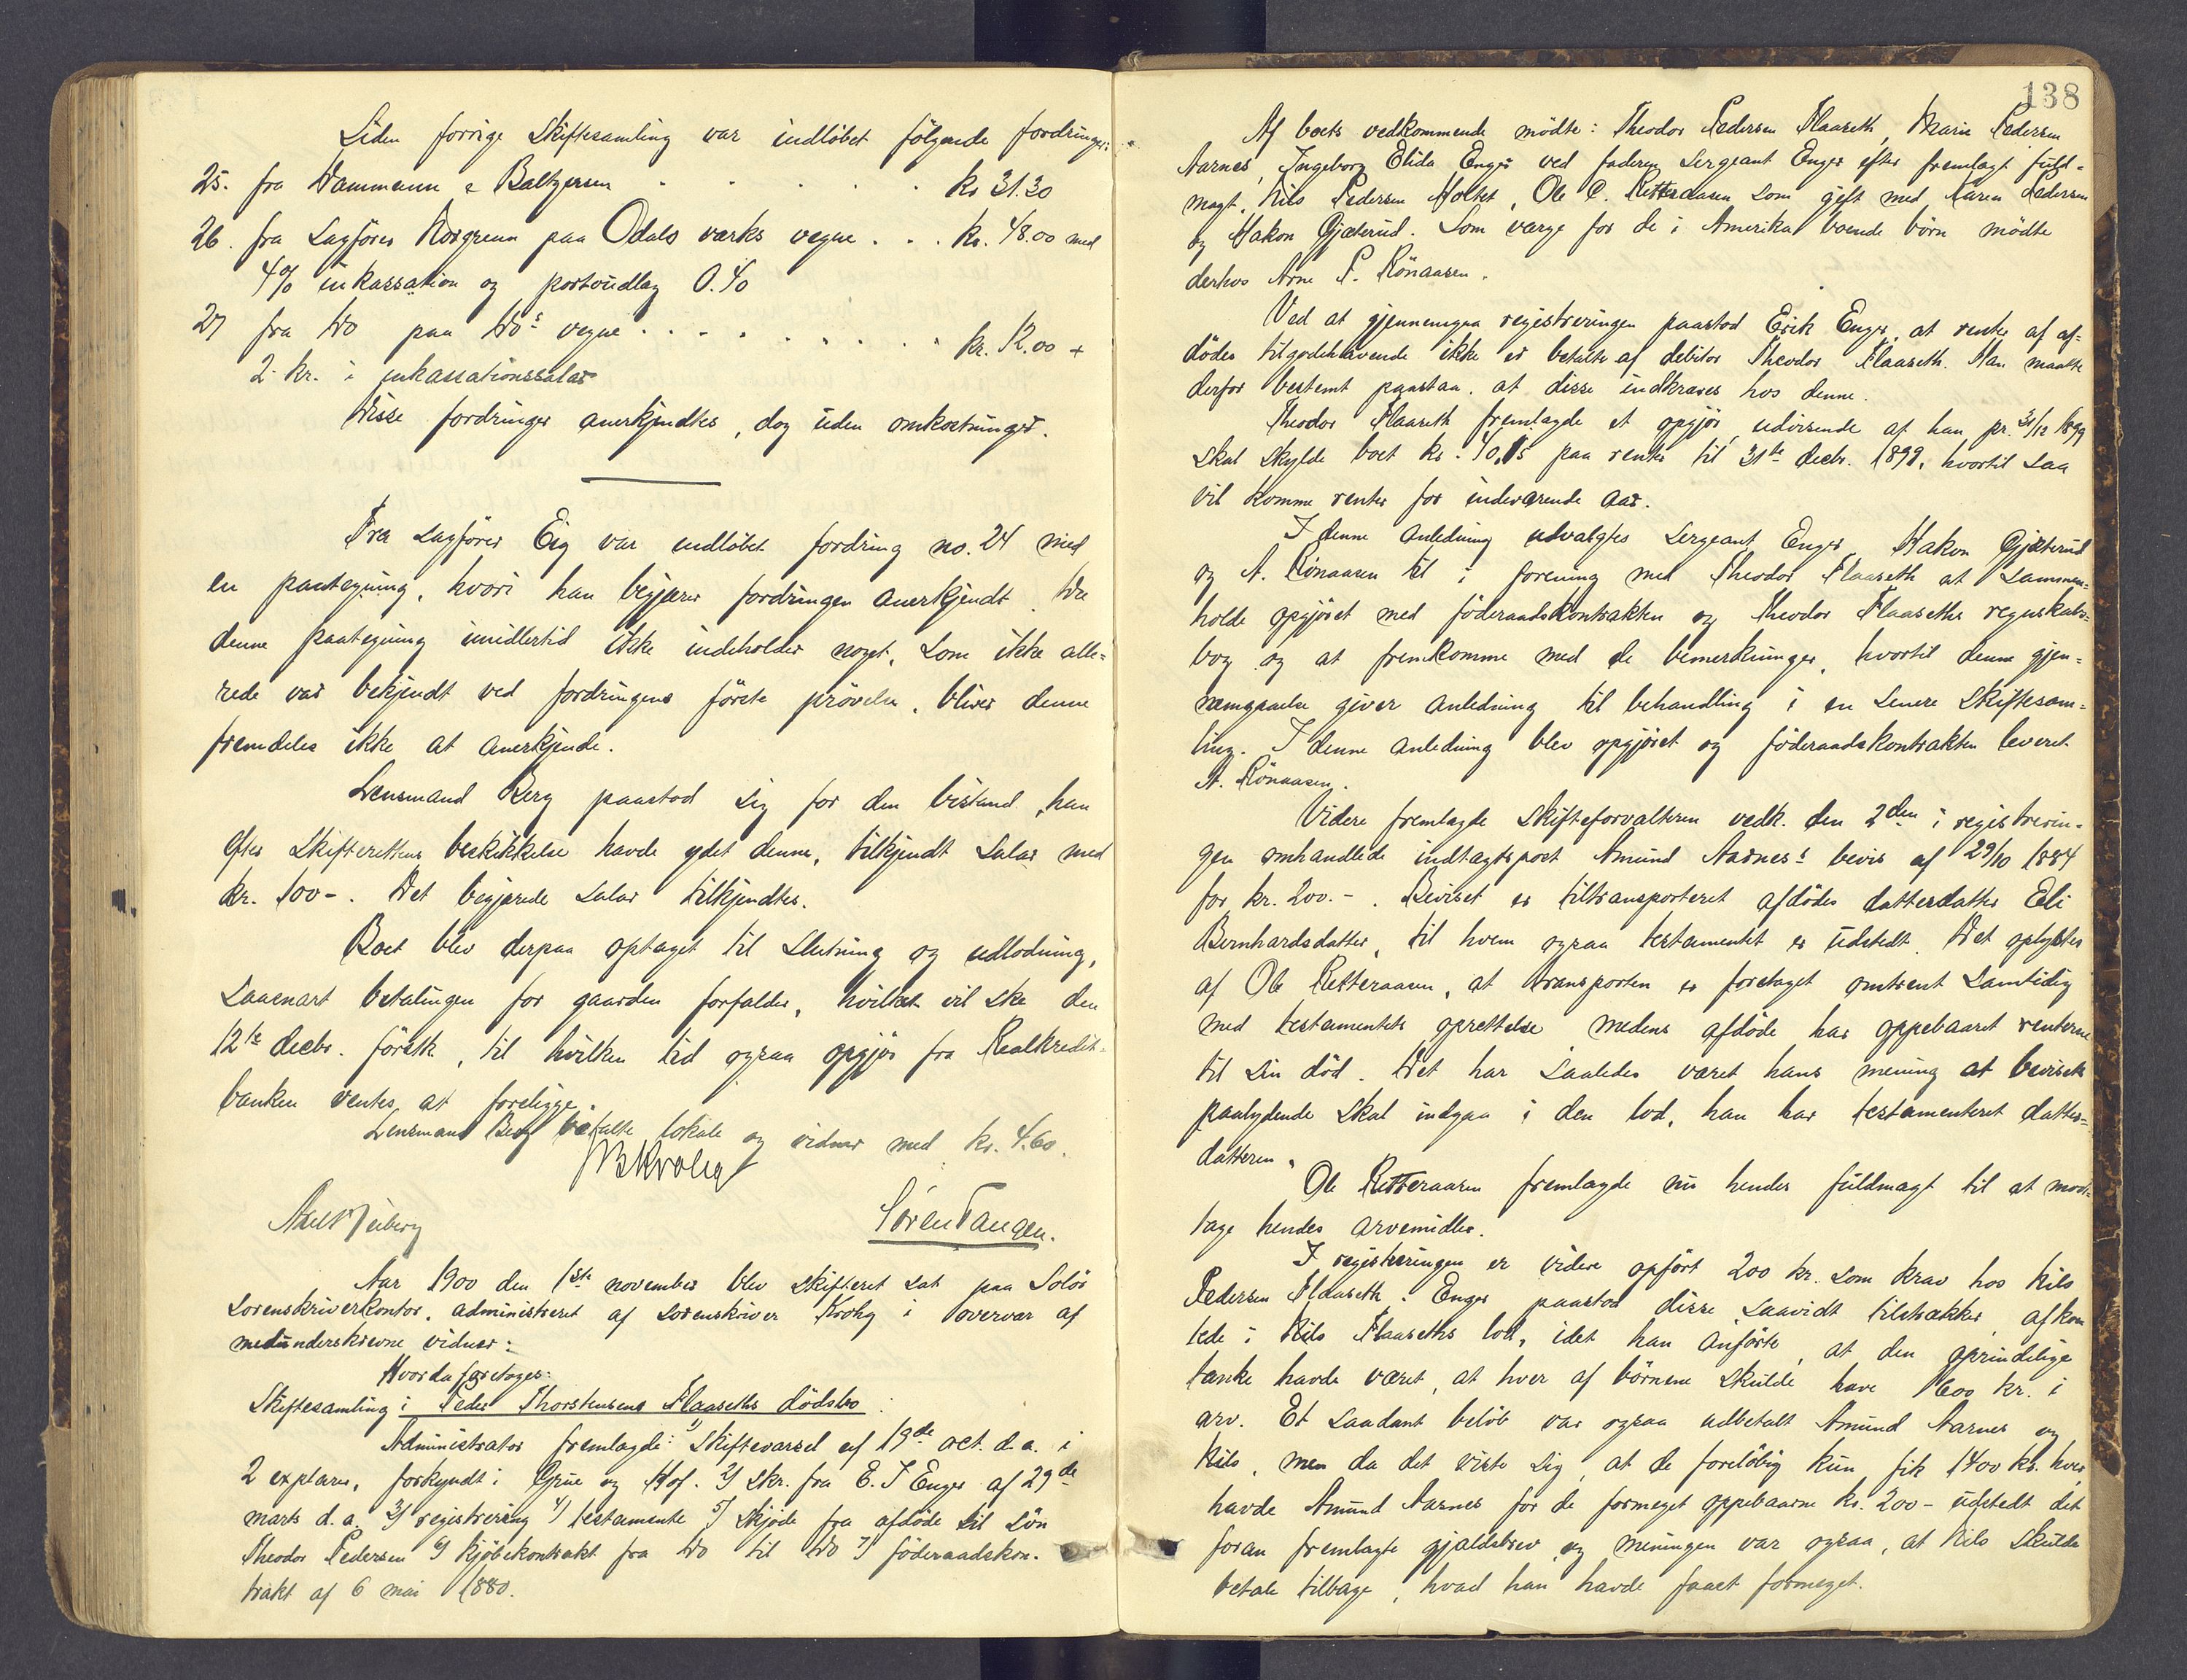 Siden forrige skiftesamling var indløbet følgende fordringer:
25. fra Dammann & Baltzersen . . . . . kr 31.30
26. fra sagfører Norgrenn paa Odals værks vegne . . . kr. 48.00 med
4% inkassation og portoudlæg 0.40
27 fra do paa do's vegne . . . . . . . . . kr. 12.00 +
2 kr. i inkassationssalær
Disse fordringer anerkjendtes, dog uden omkostninger.
Fra sagfører Eig var indløbet fordring no. 24 med
en paategning, hvori han begjærer fordringen anerkjendt. Da
denne paategning imidlertid ikke indeholder noget, som ikke alle-
rede var bekjendt ved fordringens første prøvelse, bliver denne
fremdeles ikke at anerkjende.
Lensmand Berg paastod sig for den bistand, han
efter skifterettens beskikkelse havde ydet denne, tilkjendt salær med
kr. 100-. Det begjærede salær tilkjendtes.
Boet blev derpaa optaget til slutning og udlodning,
saasnart betalingen for gaarden forfalder, hvilket vil ske den
12te decbr. førstk, til hvilken tid ogsaa opgjør fra Realkredit-
banken ventes at foreligge.
Lensmand Berg betalte lokale og vidner med kr. 4.60.
Søren Tangen.
Aar 1900 den 1ste november blev skifteret sat paa Solør
sorenskriverkontor, administreret af sorenskriver Krohg i overvær af
medunderskrevne vidner:
Hvorda foretoges:
Skiftesamling i Peder Thorstensens Flaaseths dødsbo
Administrator fremlagde: 1) skiftevarsel af 19de oct. d.a. i
2 explarer, forkyndt i Grue og Hof. 2) skr. fra E. J Enger af 29de
marts d.a. 3) registrering 4) testamente 5) skjøde fra afdøde til søn
Theodor Pedersen 6) kjøbekontrakt fra do til do 7) føderaadskon-
trakt af 6 mai 1880.
138
Af boets vedkommende mødte: Theodor Pedersen Flaaseth, Marie Pedersen
Aarnes, Ingeborg Elida Enger ved faderen sergeant Enger efter fremlagt fuld-
magt, Nils Pedersen Holtet, Ole C. Retteraasen som gift med Karen Pedersen
og Hakon Gjæterud. Som værge for de i Amerika boende børn mødte
derhos Arne P. Rönaasen.
Ved at gjennemgaa registreringen paastod Erik Enger, at renter af af-
dødes tilgodehavende ikke er betalte af debitor Theodor Flaaseth. Han maatte
derfor bestemt paastaa, at disse indkræves hos denne.
Theodor Flaaseth fremlagde et opgjør, udvisende at han pr. 31/12 1899
skal skylde boet kr. 40,15 paa renter til 31te decbr. 1899, hvortil saa
vil komme renter for indeværende aar.
I denne anledning udvalgtes sergeant Enger, Hakon Gjæterud
og A. Rönaasen til i forening med Theodor Flaaseth at sammen-
holde opgjøret med føderaadskontrakten og Theodor Flaaseths regnskabs-
bog og at fremkomme med de bemerkninger, hvortil denne gjen-
nemgaaelse giver anledning til behandling i en senere skiftesam-
ling. I denne anledning blev opgjøret og føderaadskontrakten leveret
A. Rönaasen.
Videre fremlagde skifteforvalteren vedk. den 2den i registrerin-
gen omhandlede indtægtspost Amund Aarnes's bevis af 29/10 1884
for kr. 200.-. Beviset er tiltransporteret afdødes datterdatter Eli
Bernhardsdatter, til hvem ogsaa testamentet er udstedt. Det oplystes
af Ole Retteraasen, at transporten er foretaget omtrent samtidig
med testamentets oprettelse medens afdøde har oppebaaret renterne
til sin død. Det har saaledes været hans mening at bevisets
paalydende skal indgaa i den lod, han har testamenteret datter-
datteren.
Ole Retteraasen fremlagde nu hendes fuldmagt til at mod-
tage hendes arvemidler.
I registreringen er videre opført 200 kr. som krav hos Nils
Pedersen Flaaseth. Enger paastod disse, saavidt tilstrækker, afkor
tede i Nils Flaaseths lod, idet han anførte, at den oprindelige
tanke havde været, at hver af børnene skulde have 1600 kr. i
arv. Et saadant beløb var ogsaa udbetalt Amund Aarnes og
Nils, men da det viste sig, at de foreløbig kun fik 1400 kr. hver
havde Amund Aarnes for de formeget oppebaarne kr. 200- udstedt det
foran fremlagte gjældsbrev og meningen var ogsaa, at Nils skulde
betale tilbage, hvad han havde faaet formeget.